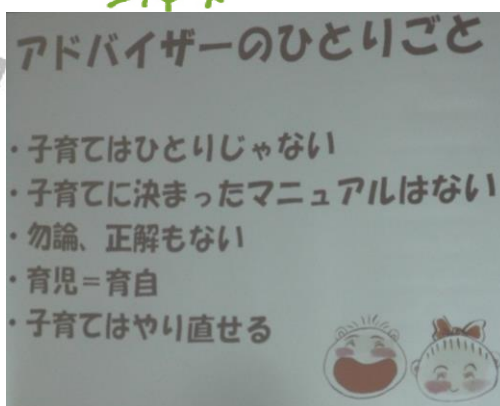 アドバイザーのひとりごと
・子育てはひとりじゃない
・子育てに決まったマニュアルはない
・勿論、正解もない
・育児＝育自
・子育てはやり直せる